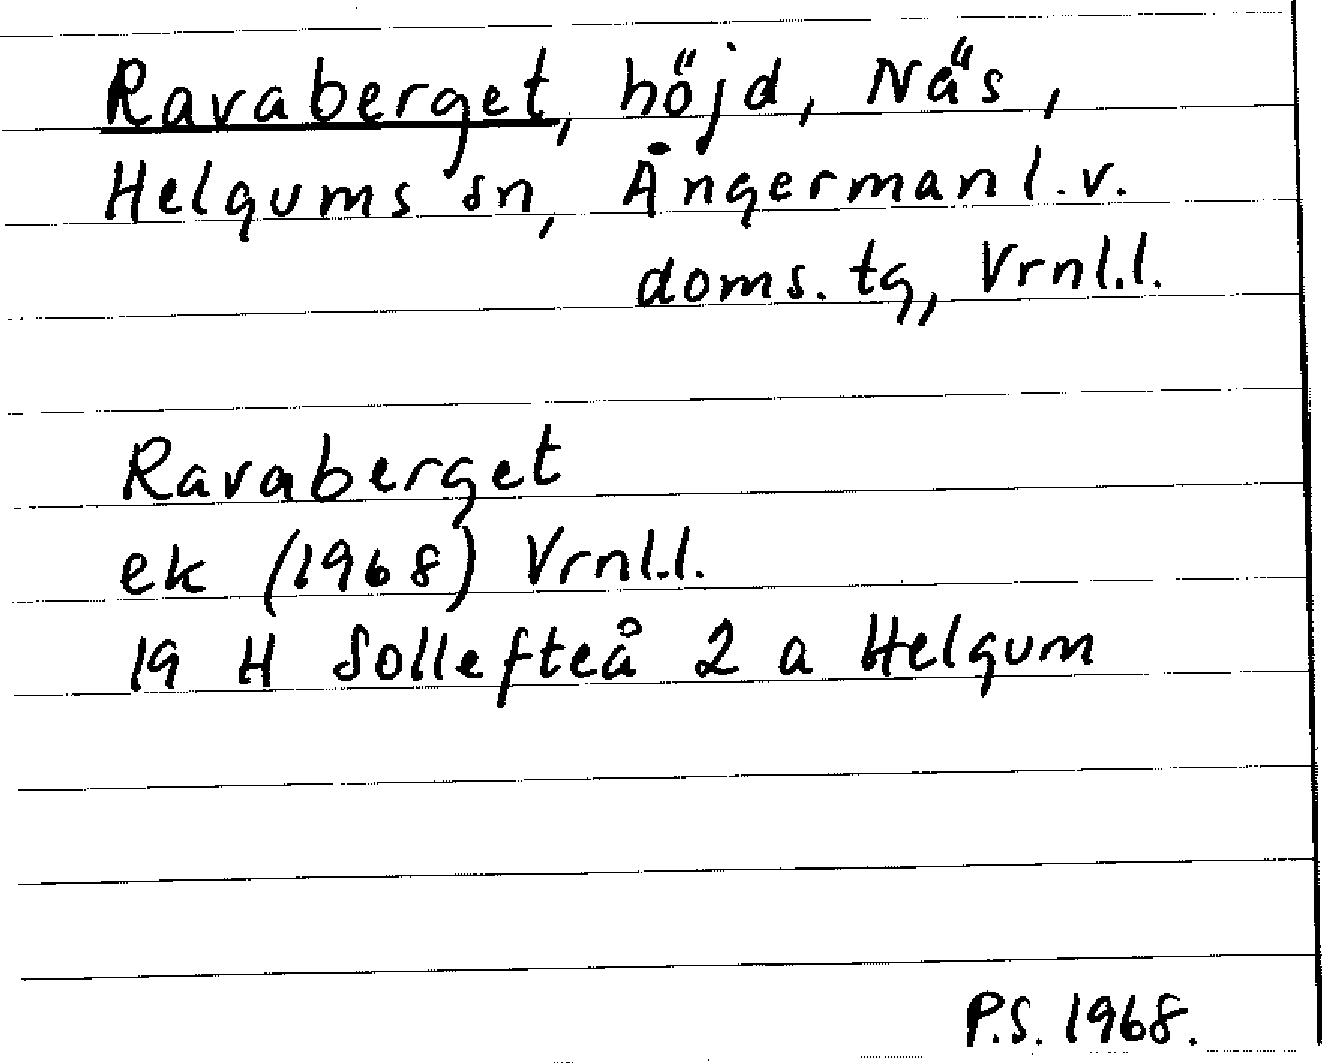 Ravaberget, höjd, Näs,
Helgums sn, Ångermanl. v.
doms. tg, Vrnl.l.
Ravaberget
ek (1968) Vrnl.l.
19 H Sollefteå 2 a Helgum
P.S. 1968.